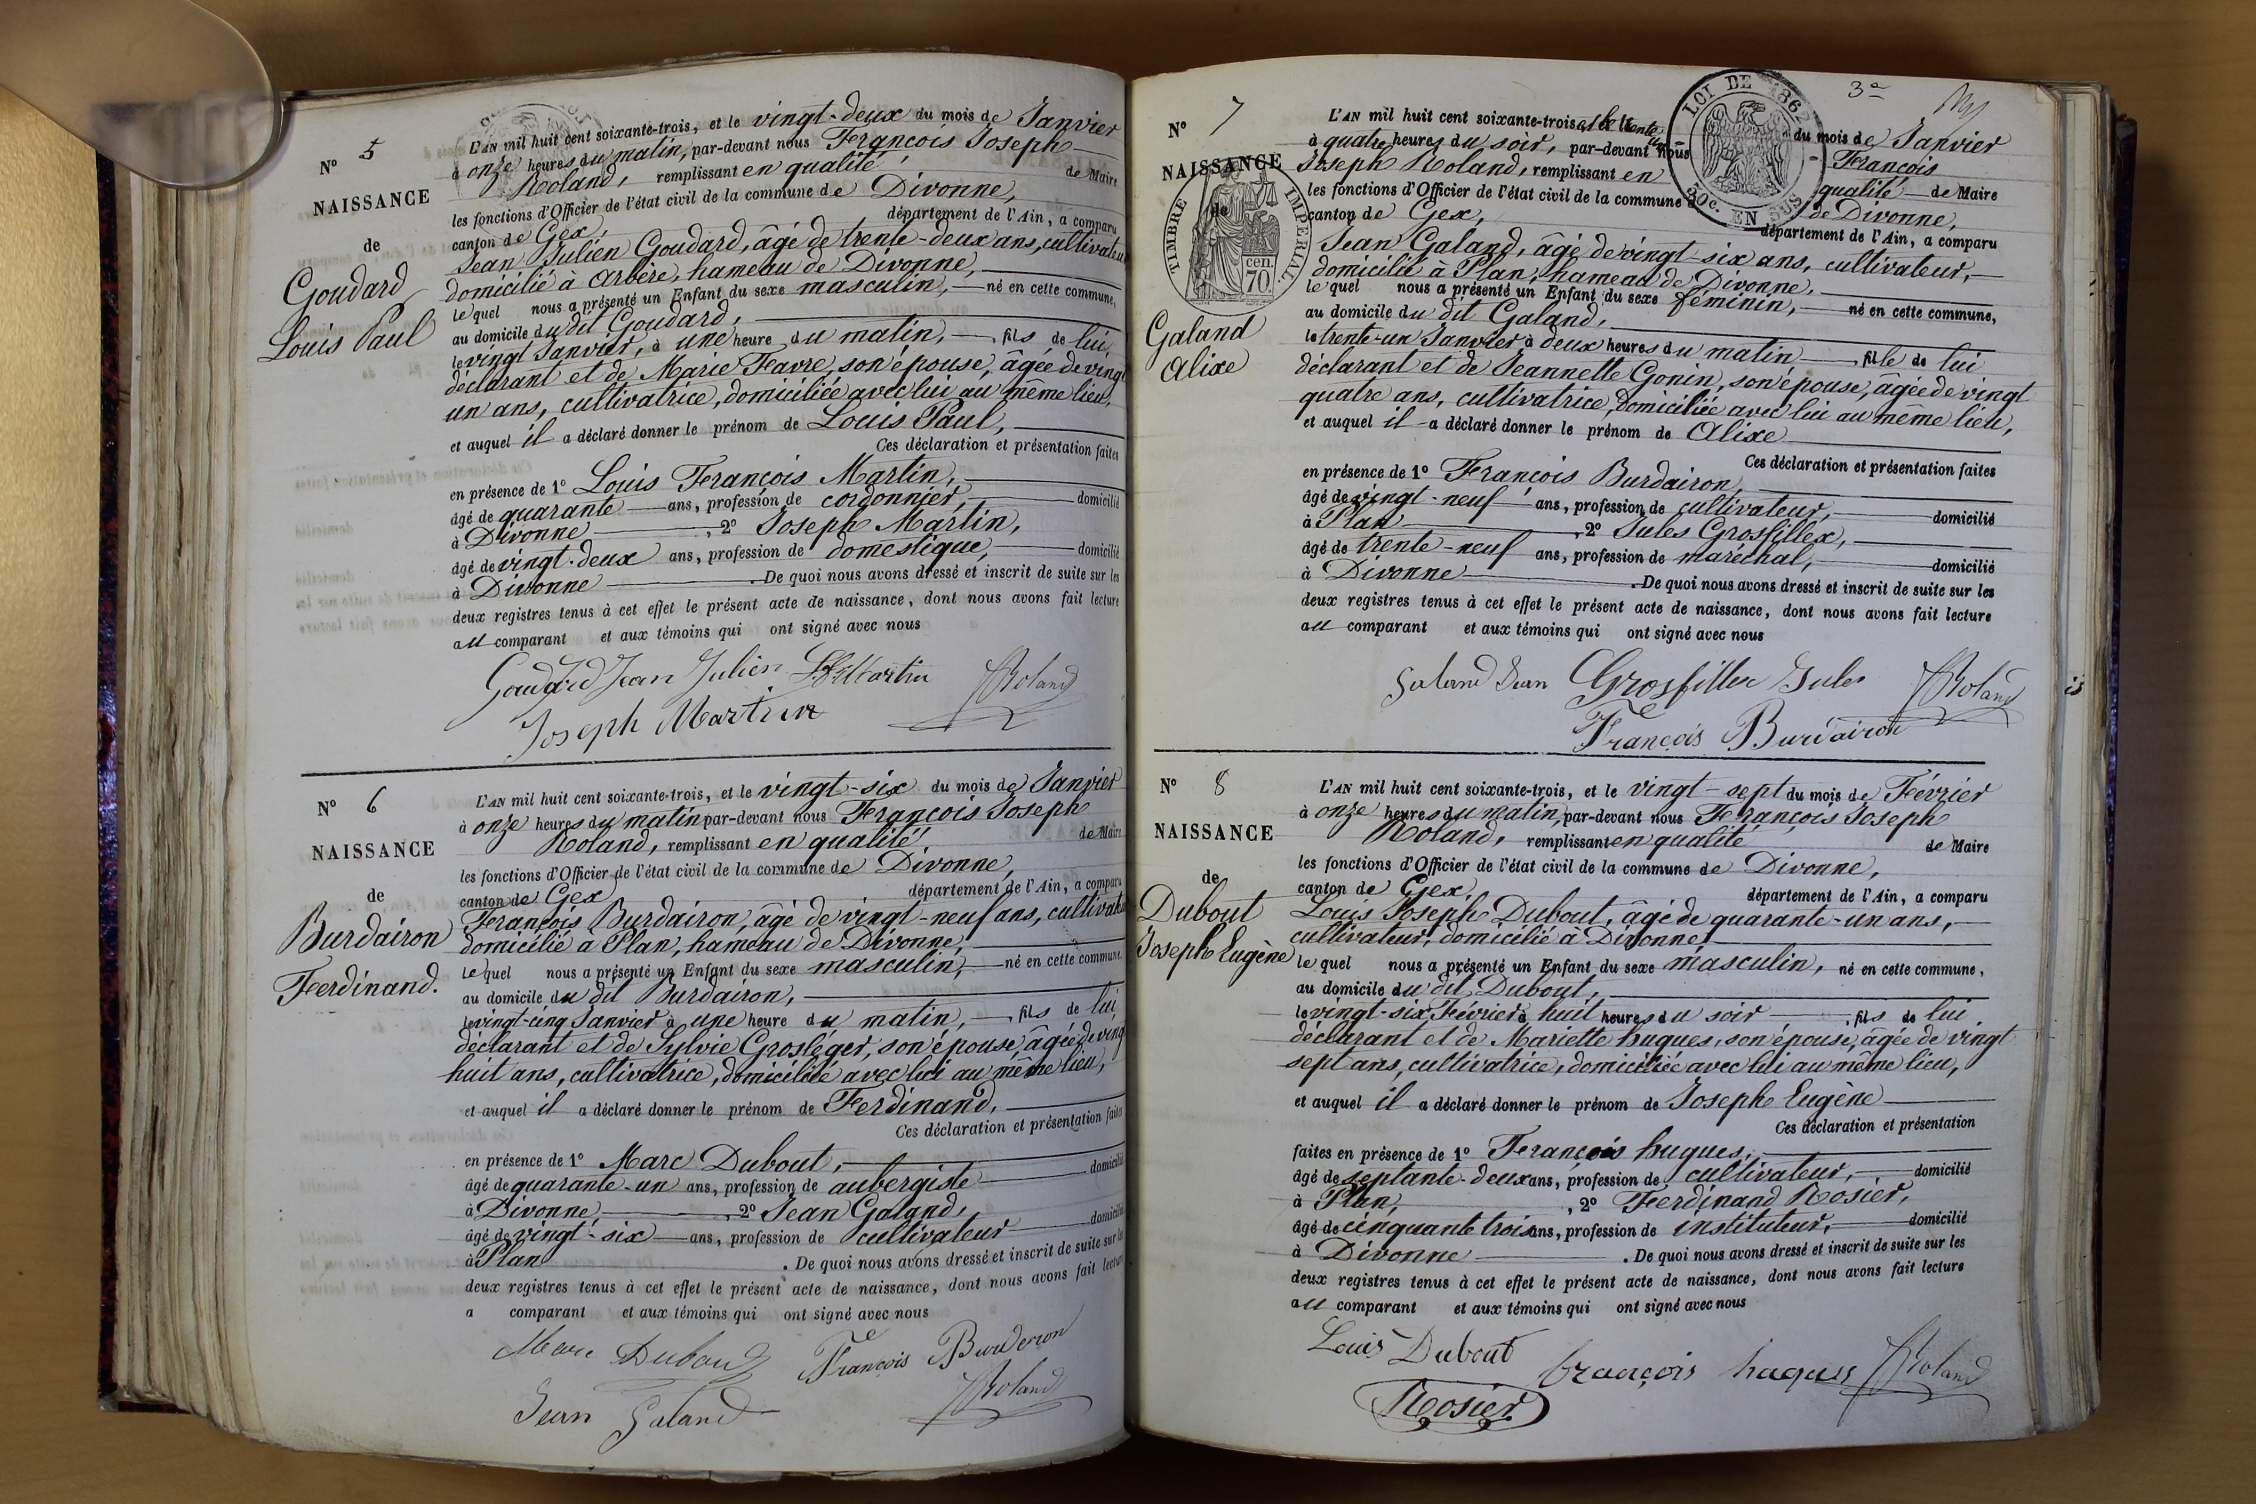 N° 5
NAISSANCE
de
Goudard
Louis Paul
L'AN mil huit cent soixante-trois, et le vingt-deux du mois de Janvier
à onze heures du matin, par-devant nous François Joseph
Roland, remplissant en qualité de Maire
les fonctions d'Officier de l'état civil de la commune de Divonne,
canton de Gex, département de l'Ain, a comparu
Jean Julien Goudard, âgé de trente-deux ans, cultivateur
domicilié à Arbère, hameau de Divonne,
lequel nous a présenté un Enfant du sexe masculin, né en cette commune,
au domicile du dit Goudard,
le vingt Janvier, à une heure du matin, fils de lui
déclarant et de Marie Favre, son épouse, âgée de vingt
un ans, cultivatrice, domiciliée avec lui au même lieu,
et auquel il a déclaré donner le prénom de Louis Paul,
Ces déclaration et présentation faites
en présence de 1° Louis François Martin,
âgé de quarante ans, profession de cordonnier, domicilié
à Divonne, 2° Joseph Martin,
âgé de vingt-deux ans, profession de domestique, domicilié
à Divonne. De quoi nous avons dressé et inscrit de suite sur les
deux registres tenus à cet effet le présent acte de naissance, dont nous avons fait lecture
au comparant et aux témoins qui ont signé avec nous
Goudard Jean Julien L. F. Martin J Roland
Joseph Martin
N° 6
NAISSANCE
de
Burdairon
Ferdinand.
L'AN mil huit cent soixante-trois, et le vingt-six du mois de Janvier
à onze heures du matin par-devant nous François Joseph
Roland, remplissant en qualité de Maire
les fonctions d'Officier de l'état civil de la commune de Divonne,
canton de Gex département de l'Ain, a comparu
François Burdairon, âgé de vingt-neuf ans, cultivateur
domicilié à Plan, hameau de Divonne,
lequel nous a présenté un Enfant du sexe masculin, né en cette commune,
au domicile du dit Burdairon,
le vingt-cinq Janvier à une heure du matin, fils de lui
déclarant et de Sylvie Grosléger, son épouse, âgée de vingt
huit ans, cultivatrice, domiciliée avec lui au même lieu,
et auquel il a déclaré donner le prénom de Ferdinand,
Ces déclaration et présentation faites
en présence de 1° Marc Dubout, 
âgé de quarante-un ans, profession de aubergiste domicilié
à Divonne, 2° Jean Galand,
âgé de vingt-six ans, profession de cultivateur domicilié
à Plan. De quoi nous avons dressé et inscrit de suite sur les
deux registres tenus à cet effet le présent acte de naissance, dont nous avons fait lecture
a comparant et aux témoins qui ont signé avec nous
Marc Dubout François Burderon
Jean Galand J Roland
3e
N° 7
NAISSANCE
de
TIMBRE IMPERIAL.
cen.
70
LOI DE 1862
50c. EN SUS
Galand
Alixe
L'AN mil huit cent soixante-trois, et le trente un du mois de Janvier
à quatre heures du soir, par-devant nous François
Joseph Roland, remplissant en qualité de Maire
les fonctions d'Officier de l'état civil de la commune de Divonne,
canton de Gex, département de l'Ain, a comparu
Jean Galand, âgé de vingt-six ans, cultivateur,
domicilié à Plan, hameau de Divonne,
lequel nous a présenté un Enfant du sexe féminin, né en cette commune,
au domicile du dit Galand,
le trente-un Janvier à deux heures du matin, fille de lui
déclarant et de Jeannette Gonin, son épouse, âgée de vingt
quatre ans, cultivatrice, domiciliée avec lui au même lieu,
et auquel il a déclaré donner le prénom de Alixe
Ces déclaration et présentation faites
en présence de 1° François Burdairon,
âgé de vingt-neuf ans, profession de cultivateur, domicilié
à Plan, 2° Jules Grosfillex,
âgé de trente-neuf ans, profession de maréchal, domicilié
à Divonne. De quoi nous avons dressé et inscrit de suite sur les
deux registres tenus à cet effet le présent acte de naissance, dont nous avons fait lecture
au comparant et aux témoins qui ont signé avec nous
Galand Jean Grosfillex Jules J Roland
François Burdairon
N° 8
NAISSANCE
de
Dubout
Joseph Eugène
L'AN mil huit cent soixante-trois, et le vingt-sept du mois de Février
à onze heures du matin, par-devant nous François Joseph
Roland, remplissant en qualité de Maire
les fonctions d'Officier de l'état civil de la commune de Divonne,
canton de Gex, département de l'Ain, a comparu
Louis Joseph Dubout, âgé de quarante-un ans,
cultivateur, domicilié à Divonne,
lequel nous a présenté un Enfant du sexe masculin, né en cette commune,
au domicile du dit Dubout,
le vingt-six Février à huit heures du soir, fils de lui
déclarant et de Mariette hugues, son épouse, âgée de vingt
sept ans, cultivatrice, domiciliée avec lui au même lieu,
et auquel il a déclaré donner le prénom de Joseph Eugène
Ces déclaration et présentation
faites en présence de 1° François hugues,
âgé de septante-deux ans, profession de cultivateur, domicilié
à Plan, 2° Ferdinand Rosier,
âgé de cinquante trois ans, profession de instituteur, domicilié
à Divonne. De quoi nous avons dressé et inscrit de suite sur les
deux registres tenus à cet effet le présent acte de naissance, dont nous avons fait lecture
au comparant et aux témoins qui ont signé avec nous
Louis Dubout françois hugues J Roland
Rosier